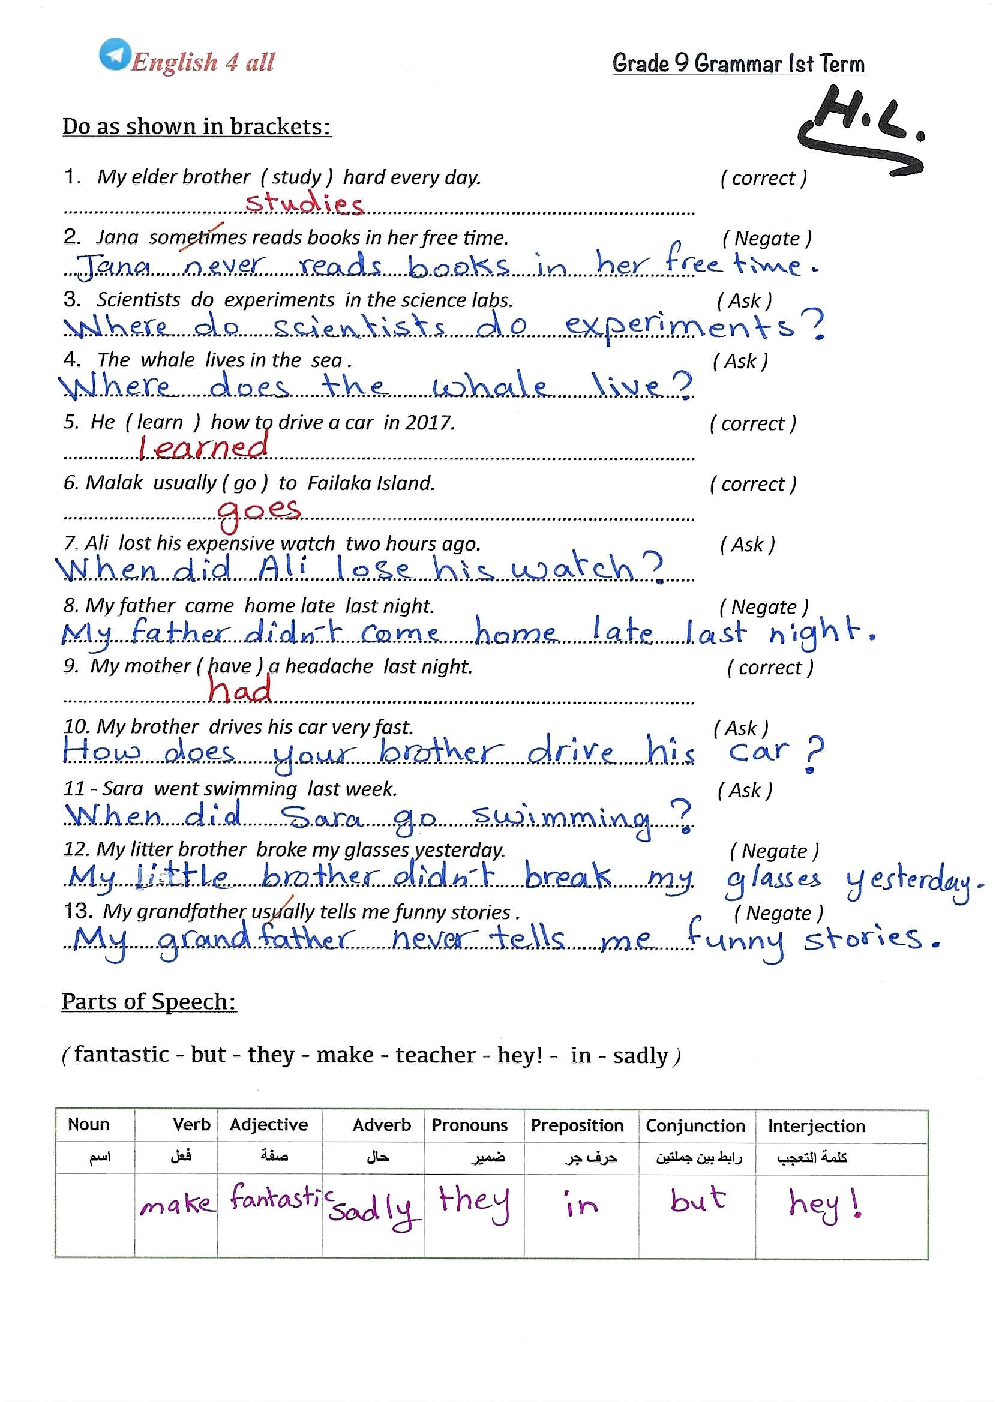 English 4 all
Grade 9 Grammar 1st Term
H.L.
Do as shown in brackets:
1. My elder brother ( study ) hard every day. ( correct )
studies
2. Jana sometimes reads books in her free time. ( Negate )
Jana never reads books in her free time.
3. Scientists do experiments in the science labs. ( Ask )
Where do scientists do experiments?
4. The whale lives in the sea . ( Ask )
Where does the whale live?
5. He ( learn ) how to drive a car in 2017. ( correct )
learned
6. Malak usually ( go ) to Failaka Island. ( correct )
goes
7. Ali lost his expensive watch two hours ago. ( Ask )
When did Ali lose his watch?
8. My father came home late last night. ( Negate )
My father didn't come home late last night.
9. My mother ( have ) a headache last night. ( correct )
had
10. My brother drives his car very fast. ( Ask )
How does your brother drive his car ?
11 - Sara went swimming last week. ( Ask )
When did Sara go swimming ?
12. My litter brother broke my glasses yesterday. ( Negate )
My little brother didn't break my glasses yesterday.
13. My grandfather usually tells me funny stories . ( Negate )
My grandfather never tells me funny stories.
Parts of Speech:
( fantastic - but - they - make - teacher - hey! - in - sadly )
Noun Verb Adjective Adverb Pronouns Preposition Conjunction Interjection
اسم فعل صفة حال ضمير حرف جر رابط بين جملتين كلمة التعجب
make fantastic sadly they in but hey!